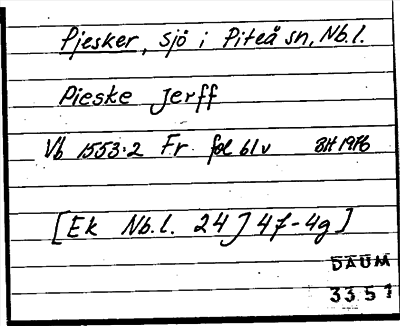 Pjesker, sjö i Piteå sn, Nb.l.
Pieske Jerff
Vb 1553:2 Fr. fol blv BH 1976
[Ek Nb.l. 24J 4f-4g]
DAUM
3351